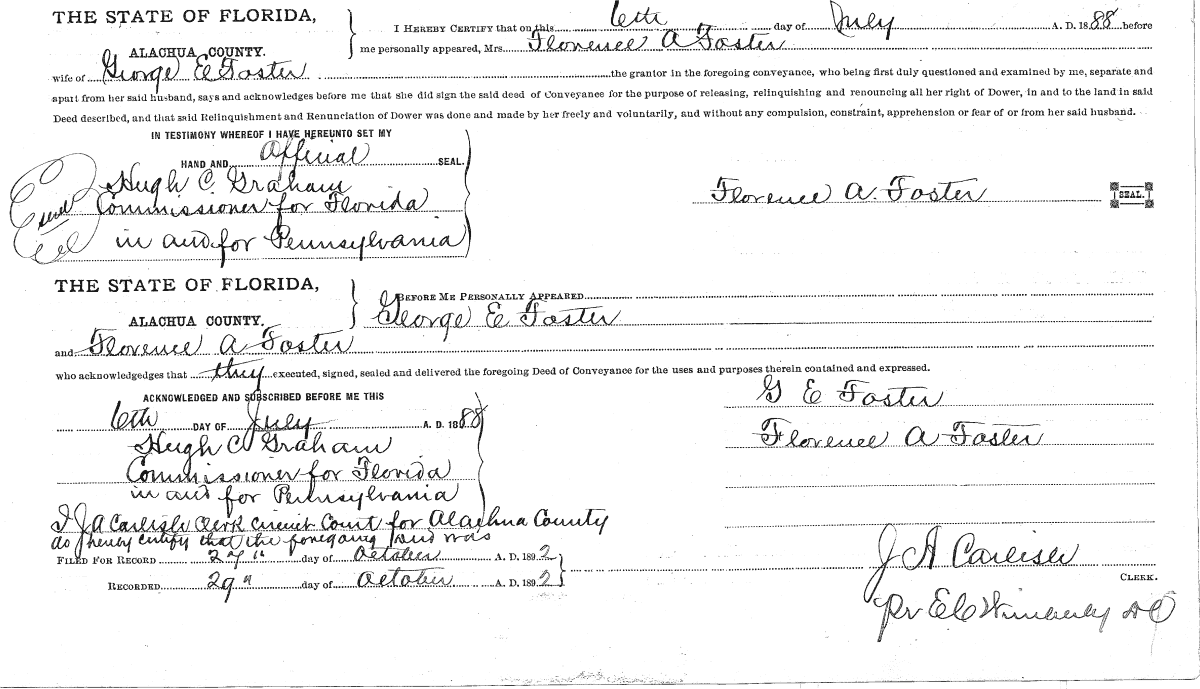 THE STATE OF FLORIDA,
ALACHUA COUNTY.
I HEREBY CERTIFY that on this 6th day of July A. D. 1888 before
me personally appeared, Mrs. Florence A Foster
wife of George E Foster the grantor in the foregoing conveyance, who being first duly questioned and examined by me, separate and
apart from her said husband, says and acknowledges before me that she did sign the said deed of Conveyance for the purpose of releasing, relinquishing and renouncing all her right of Dower, in and to the land in said
Deed described, and that said Relinquishment and Renunciation of Dower was done and made by her freely and voluntarily, and without any compulsion, constraint, apprehension or fear of or from her said husband.
IN TESTIMONY WHEREOF I HAVE HEREUNTO SET MY
HAND AND Official SEAL.
Hugh C. Graham
Commissioner for Florida
in and for Pennsylvania
Florence A. Foster SEAL.
THE STATE OF FLORIDA,
ALACHUA COUNTY.
BEFORE ME PERSONALLY APPEARED
George E Foster
and Florence A Foster
who acknowledgedges that they executed, signed, sealed and delivered the foregoing Deed of Conveyance for the uses and purposes therein contained and expressed.
ACKNOWLEDGED AND SUBSCRIBED BEFORE ME THIS
6th DAY OF July A. D. 1888
Hugh C Graham
Commissioner for Florida
in and for Pennsylvania
G E Foster
Florence A Foster
I J A Carlisle Clerk Circuit Court for Alachua County
do hereby certify that the foregoing was
FILED FOR RECORD 27" day of October A. D. 1892
RECORDED 29" day of October A. D. 1892
J A Carlisle
CLERK.
Pr E C Wimberly DC